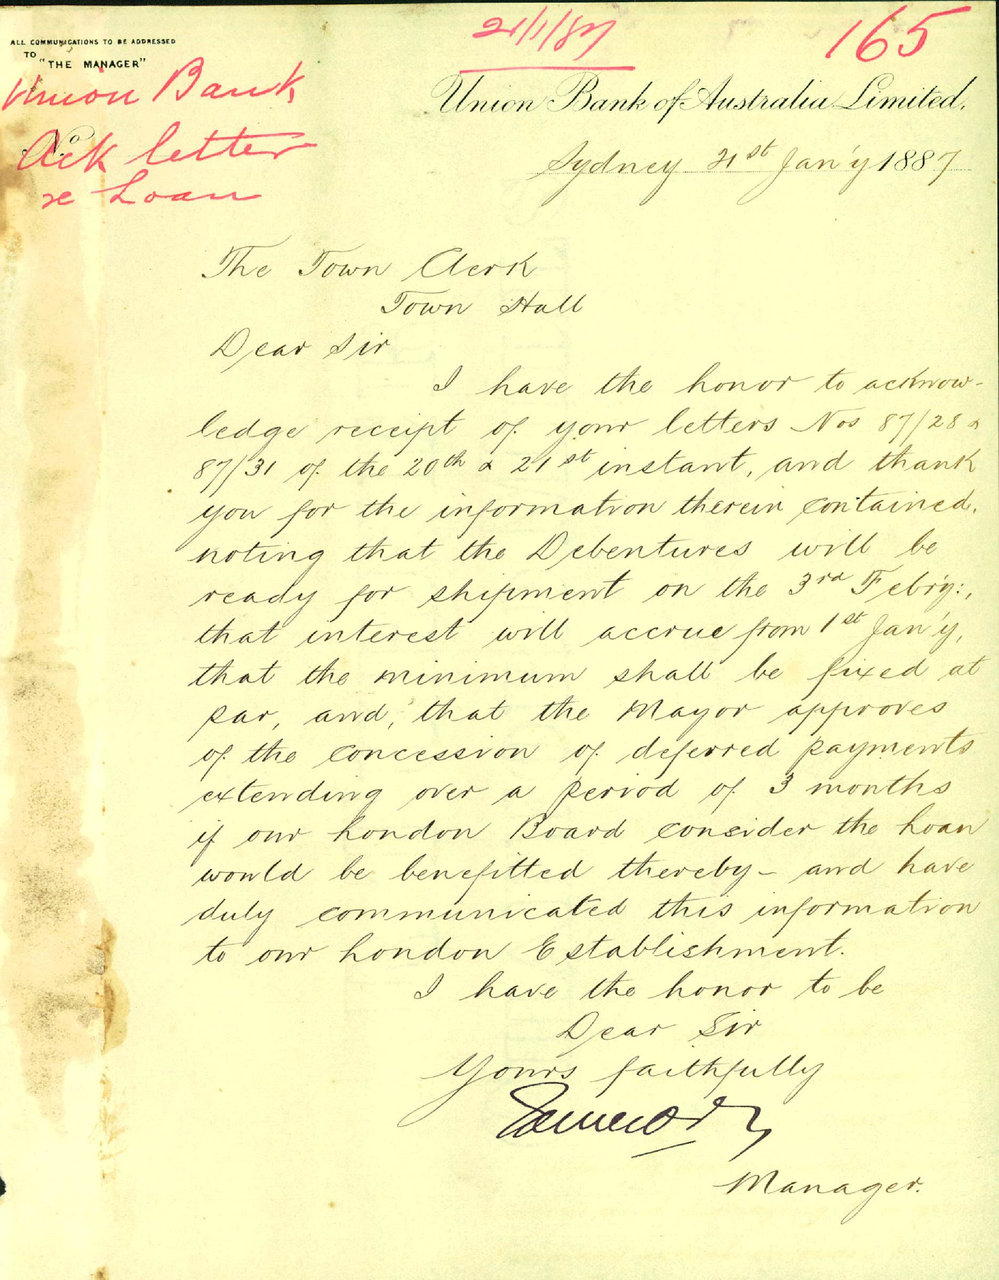 21/1/87
165
ALL COMMUNICATIONS TO BE ADDRESSED
TO
"THE MANAGER"
Union Bank
Union Bank of Australia Limited.
No
Ack letter
re Loan
Sydney 21st Jan'y 1887
The Town Clerk
Town Hall
Dear Sir
I have the honor to acknow-
ledge receipt of your letters Nos 87/28 &
87/31 of the 20th & 21st instant, and thank
you for the information therein contained,
noting that the Debentures will be
ready for shipment on the 3rd Feb'ry:,
that interest will accrue from 1st Jan'y,
that the minimum shall be fixed at
par, and, that the Mayor approves
of the concession of deferred payments
extending over a period of 3 months
if our London Board consider the Loan
would be benefitted thereby – and have
duly communicated this information
to our London Establishment.
I have the honor to be
Dear Sir
Yours faithfully
Manager.